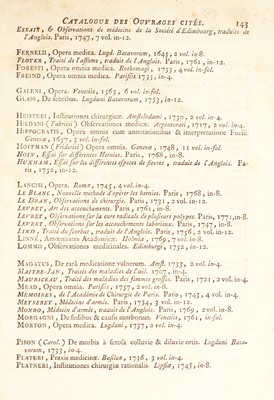 CATALOGUE DES OUVRAGES CITÉS. 143
ESSAIS, & Observations de médecine de la Société d'Edimbourg, traduites de
l'Anglois. Paris, 1747, 7 vol. in-12.
FERNELII, Opera medica. Lugd. Batavorum, 1645, 2 vol. in-8.
FLOYER, Traité de l'asthme, traduit de l'Anglois. Paris, 1761, in-12.
FORESTI, Opera omnia medica. Rothomagi, 1753, 4 vol. in-fol.
FREIND, Opera omnia medica. Parisiis 1735, in-4.
GALENI, Opera. Venetiis, 1565, 6 vol. in-fol.
GLASS, De febribus. Lugduni Batavorum, 1753, in-12.
HEISTERI, Institutiones chirurgicæ. Amstelodami, 1750, 2 vol. in-4.
HILDANI (Fabrici) Observationes medicæ. Argentorati, 1717, 2 vol. in-4.
HIPPOCRATIS, Opera omnia cum annotationibus & interpretatione Foësii.
Geneva, 1657, 3 vol. in-fol.
HOFFMAN (Friderici) Opera omnia. Geneva, 1748, 11 vol. in-fol.
HOIN, Essai sur différentes Hernies. Paris, 1768, in-8.
HUXHAM, Essai sur les différentes espèces de fievres, traduit de l'Anglois. Pa-
ris, 1752, in-12.
LANCISI, Opera. Romæ, 1745, 4 vol. in-4.
LE BLANC, Nouvelle méthode d'opérer les hernies. Paris, 1768, in-8.
LE DRAN, Observations de chirurgie. Paris, 1731, 2 vol. in-12.
LEVRET, Art des accouchements. Paris, 1761, in-8.
LEVRET, Observations sur la cure radicale de plusieurs polypes. Paris, 1771, in-8.
LEVRET, Observations sur les accouchements laborieux. Paris, 1747, in-8.
LIND, Traité du scorbut, traduit de l'Anglois. Paris, 1756, 2 vol. in-12.
LINNÉ, Amœnitates Academicæ. Holmiæ, 1769, 7 vol. in-8.
LOMMII, Observationes medicinales. Edimburgi, 1752, in-12.
MAGATUS, De rarâ medicatione vulnerum. Amst. 1733, 2 vol. in-4.
MAITRE-JAN, Traités des maladies de l'œil. 1707, in-4.
MAURICEAU, Traité des maladies des femmes grosses. Paris, 1721, 2 vol. in-4.
MEAD, Opera omnia. Parisiis, 1757, 2 vol. in-8.
MÉMOIRES, de l'Académie de Chirurgie de Paris. Paris, 1743, 4 vol. in-4.
MEYSEREY, Médecine d'armée. Paris, 1754, 3 vol. in-12.
MONRO, Médecine d'armée, traduit de l'Anglois. Paris, 1769, 2 vol. in-8.
MORGAGNI, De sedibus & causis morborum. Venetiis, 1761, in-fol.
MORTON, Opera medica. Lugduni, 1737, 2 vol. in-4.
PISON (Carol.) De morbis à serosâ colluvie & diluvie ortis. Lugduni Bata-
vorum, 1733, in-4.
PLATERI, Praxis medicinæ. Basileæ, 1736, 3 vol. in-4.
PLATNERI, Institutiones chirurgiæ rationalis. Lipsiæ, 1745, in-8.